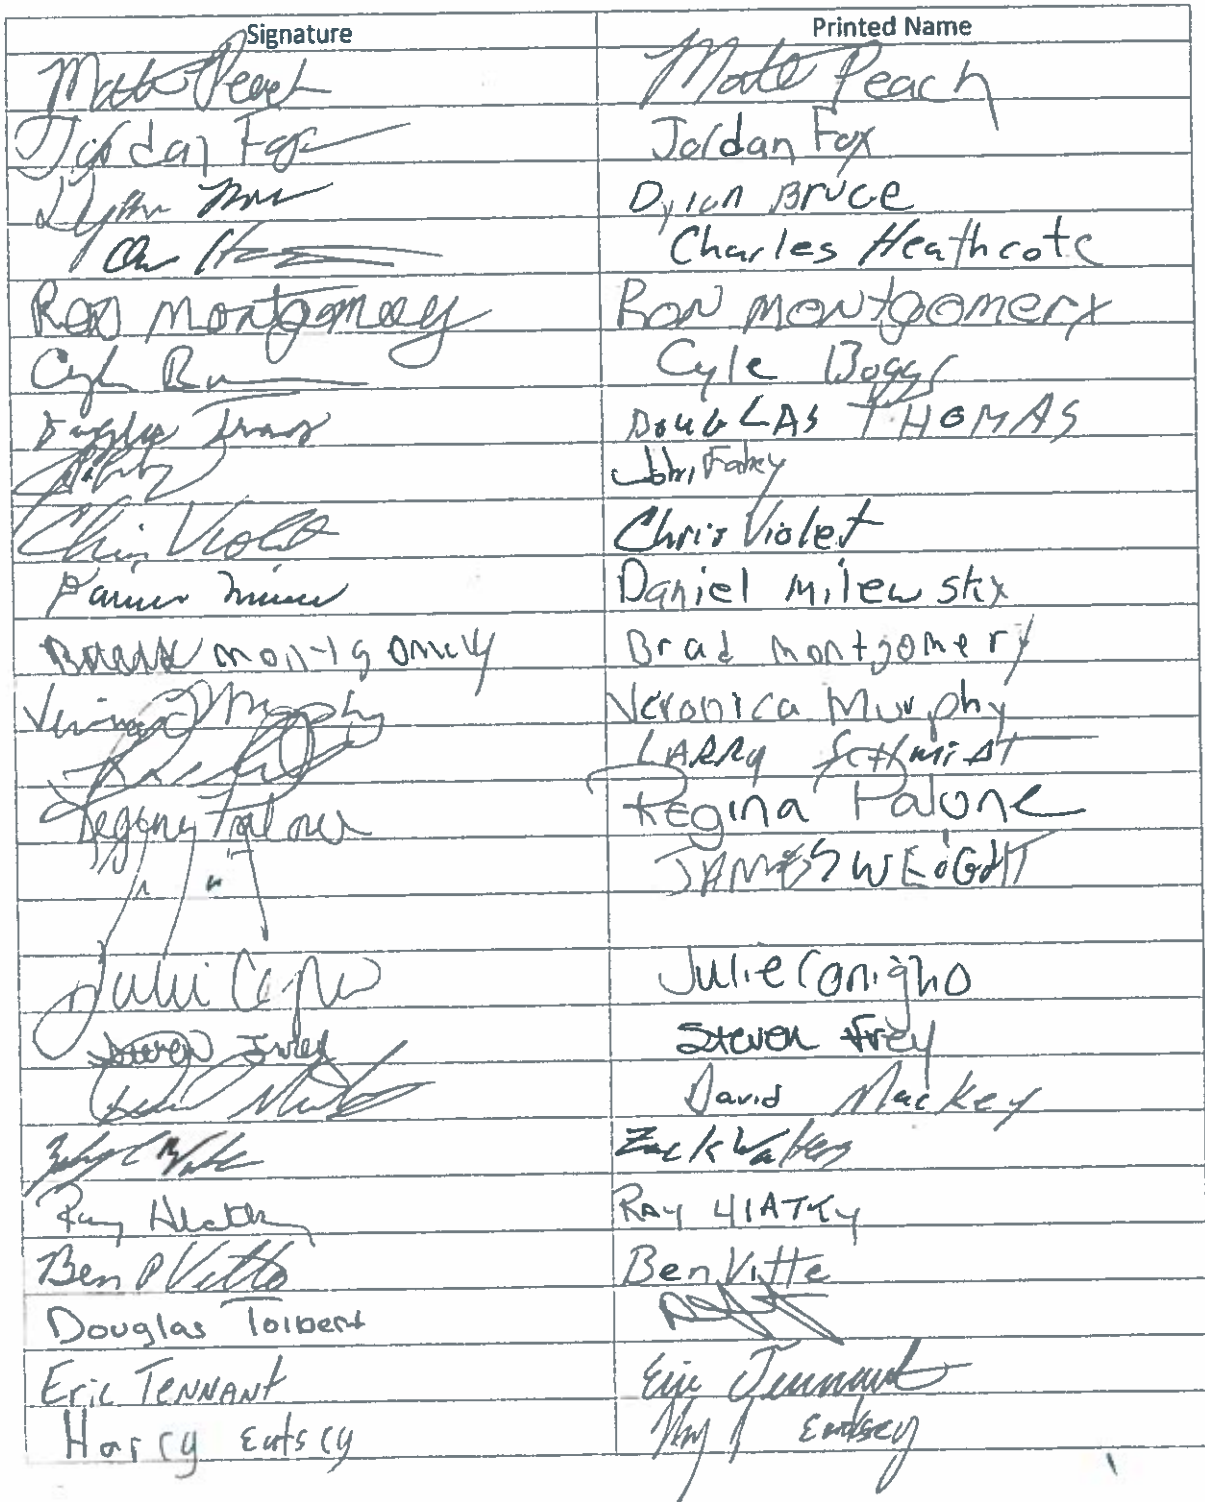 Signature Printed Name
Matt Peach Matt Peach
Jordan Fox Jordan Fox
Dylan Bruce
Charles Heathcote
Ron Montgomery Ron Montgomery
Cyle Boggs
Douglas Thomas DouGLAS THOMAS
John Fahey
Chris Violet Chris Violet
Daniel Milewsky
Montgomery Brad Montgomery
Veronica Murphy Veronica Murphy
LARRY SCHMIDT
Regina Palone Regina Palone
JAMES WEIGHT
Julie Julie Conigho
Steven Frey Steven Frey
David Mackey
Zack Walters
Ray Ray HIATKY
Ben P Vitte Ben Vitte
Douglas Tolbert
Eric TENNANT Eric Tennant
Harry